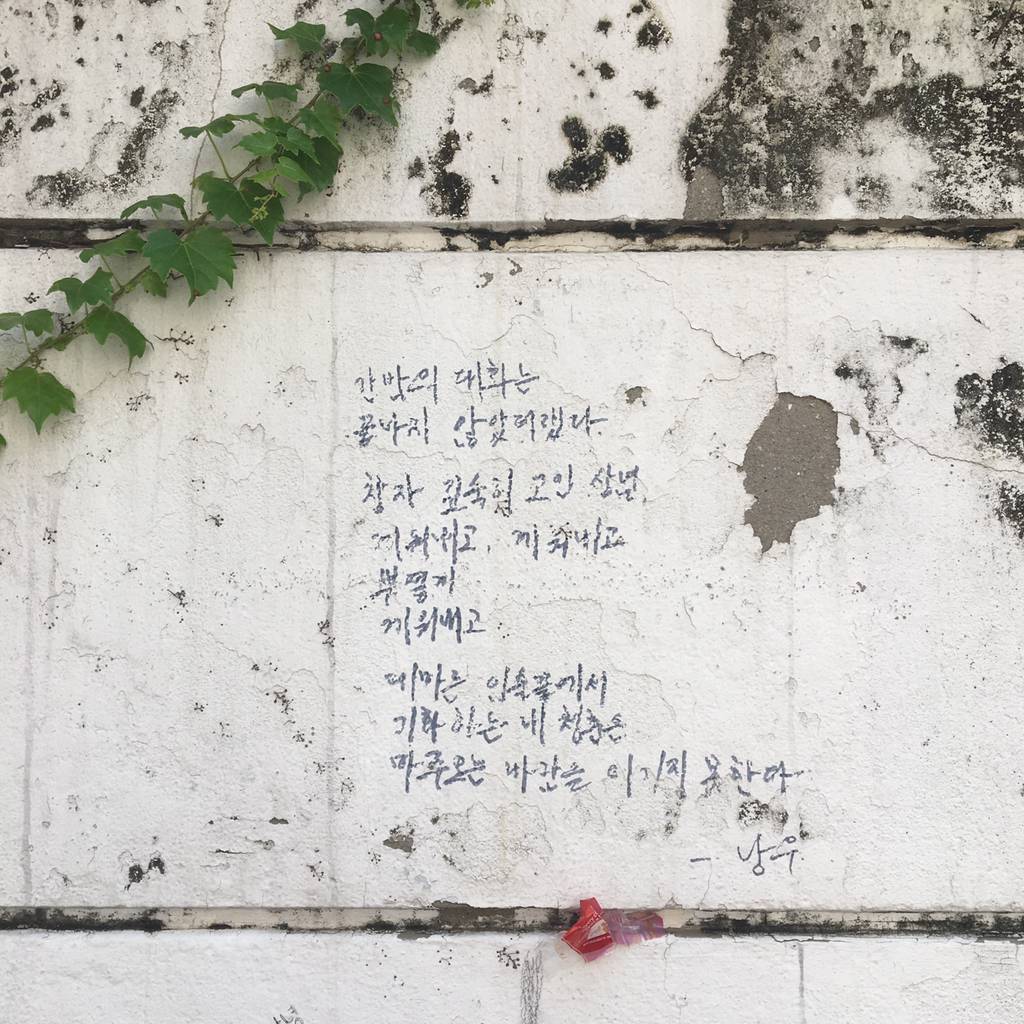 간밤의 대화는
끝나지 않았더랬다.
창자 깊숙히 고인 상념
게워내고, 게워내고
게워내고
때마른 입술끝에서
기화 하는 내 청춘은
마주오는 바람을 이기지 못한다
- 낭우